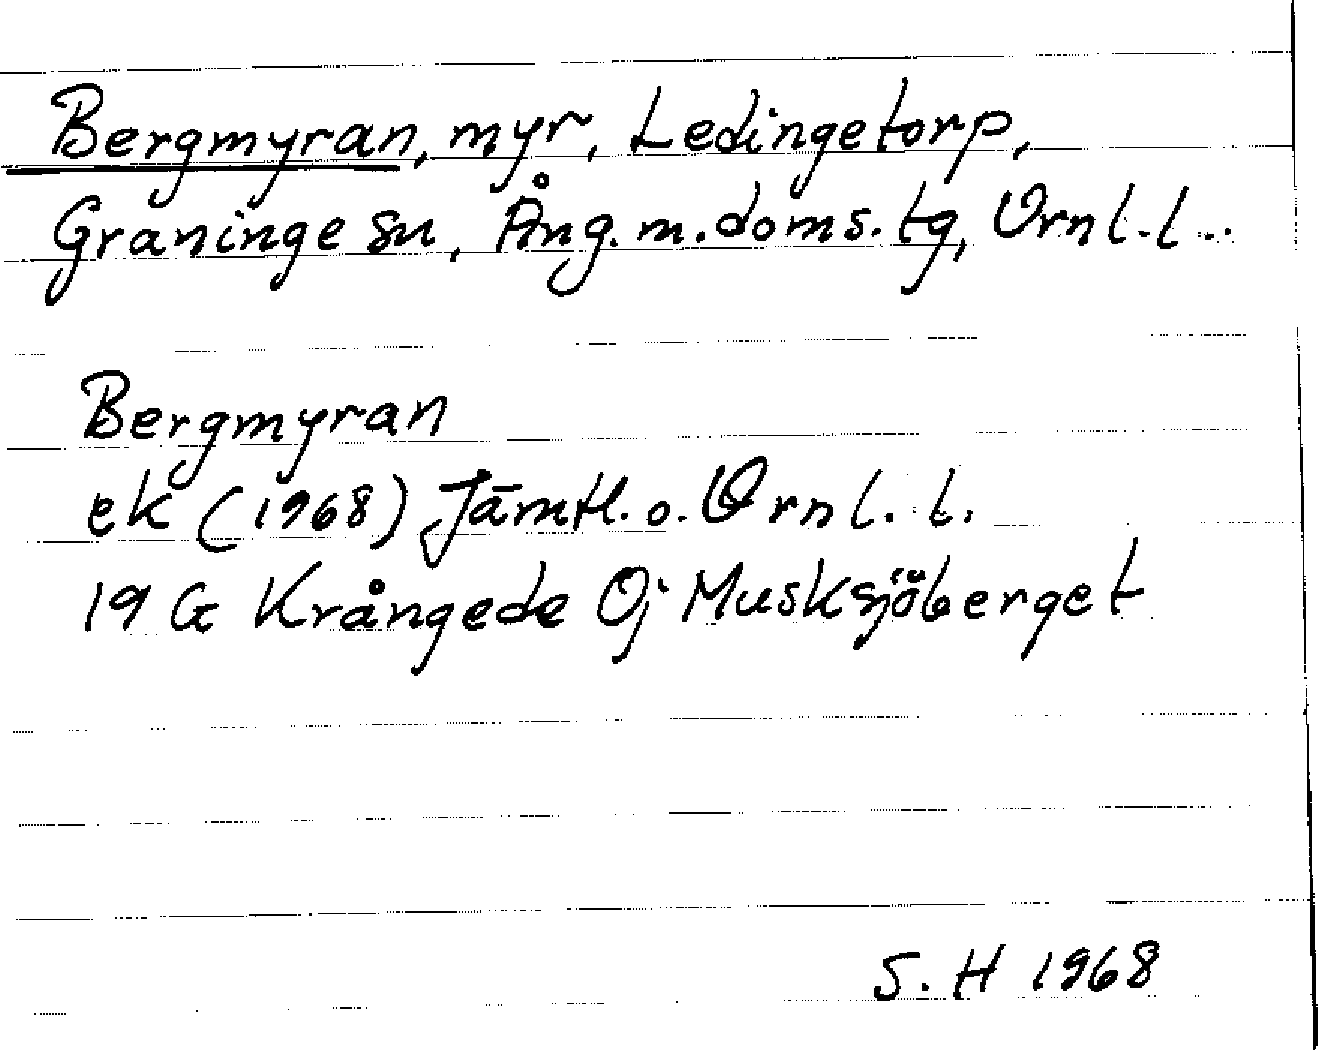 Bergmyran, myr, Ledingetorp,
Graninge sn, Ång.m.doms.tg, Vrnl.l..
Bergmyran
ek (1968) Jämtl.o.Vrnl.l.
19 G Krångede Oj Musksjöberget
S.H 1968